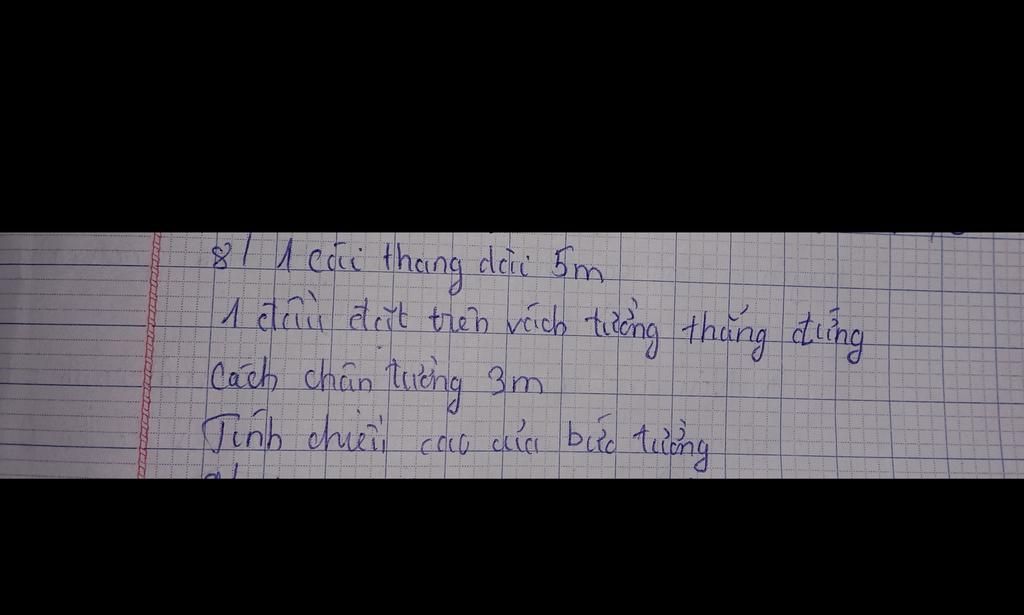 8/ 1 cái thang dài 5m
1 đầu đặt trên vách tường thẳng đứng
Cách chân tường 3m
Tính chiều cao của bức tường